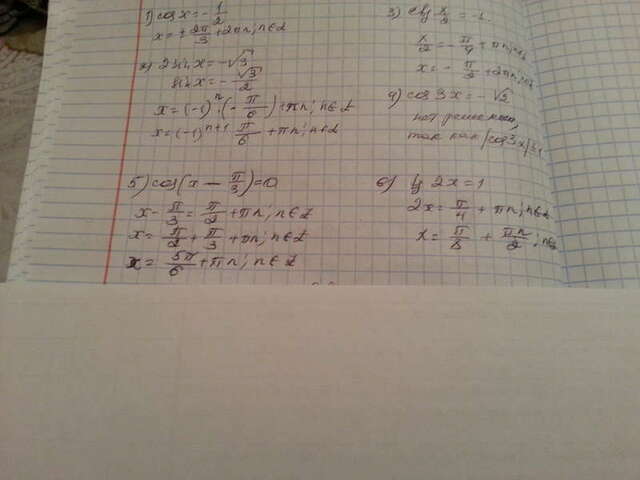 1) cos x = - 1/2
x = ± 2π/3 + 2πn; n∈Z
2) 2sin x = -√3
sin x = - √3/2
x = (-1)^n · (- π/6) + πn; n∈Z
x = (-1)^(n+1) π/6 + πn; n∈Z
x/2 = - π/4 + πn; n∈Z
x = - π/2 + 2πn; n∈Z
4) cos 3x = - √2
нет решений,
так как |cos 3x|≤1
5) cos(x - π/3) = 0
x - π/3 = π/2 + πn; n∈Z
x = π/2 + π/3 + πn; n∈Z
x = 5π/6 + πn; n∈Z
6) tg 2x = 1
2x = π/4 + πn; n∈Z
x = π/8 + πn/2; n∈Z